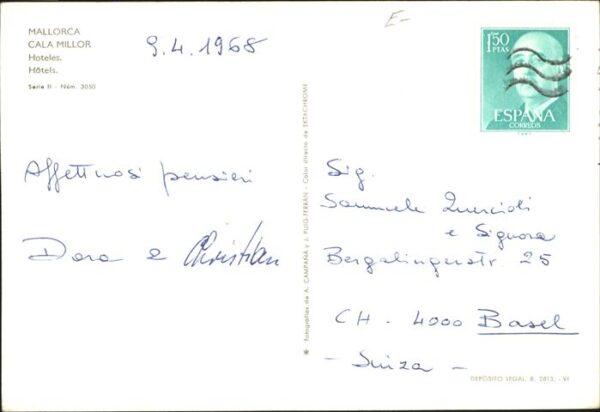 MALLORCA
CALA MILLOR
Hoteles.
Hôtels.
Serie II - Núm. 3050
9.4.1968
E-
1'50
PTAS
ESPAÑA
CORREOS
Affettuosi pensieri
Dora e Christian
Fotografías de A. CAMPAÑÁ y J. PUIG-FERRÁN - Color directo de EKTACHROME
Sig.
Samuele Quercioli
e Signora
Bergalingerstr 25
CH - 4000 Basel
- Suiza -
DEPÓSITO LEGAL B. 2013. - VI